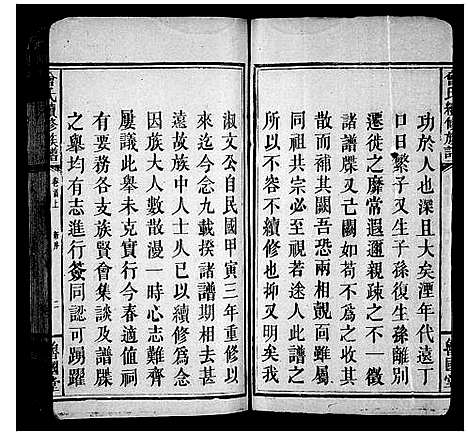 曾氏續修族譜
功於人也深且大矣湮年代遠丁
口日繁子又生子孫復生孫離別
遷徙之靡常遐邇親疎之不一徵
諸譜牒又已闕如苟不為之收其
散而補其闕吾恐兩相覿面雖屬
同祖共宗必至視若途人此譜之
所以不容不續修也抑又明矣我
淑文公自民國甲寅三年重修以
來迄今念九載揆諸譜期相去甚
遠故族中人士人已以續修爲念
因族大人數散漫一時心志難齊
屢議此舉未克實行今春適值祠
有要務各支族賢會集談及譜牒
之舉均有志進行簽同認可踴躍
曾氏續修族譜
卷首上
新序
二
魯國堂